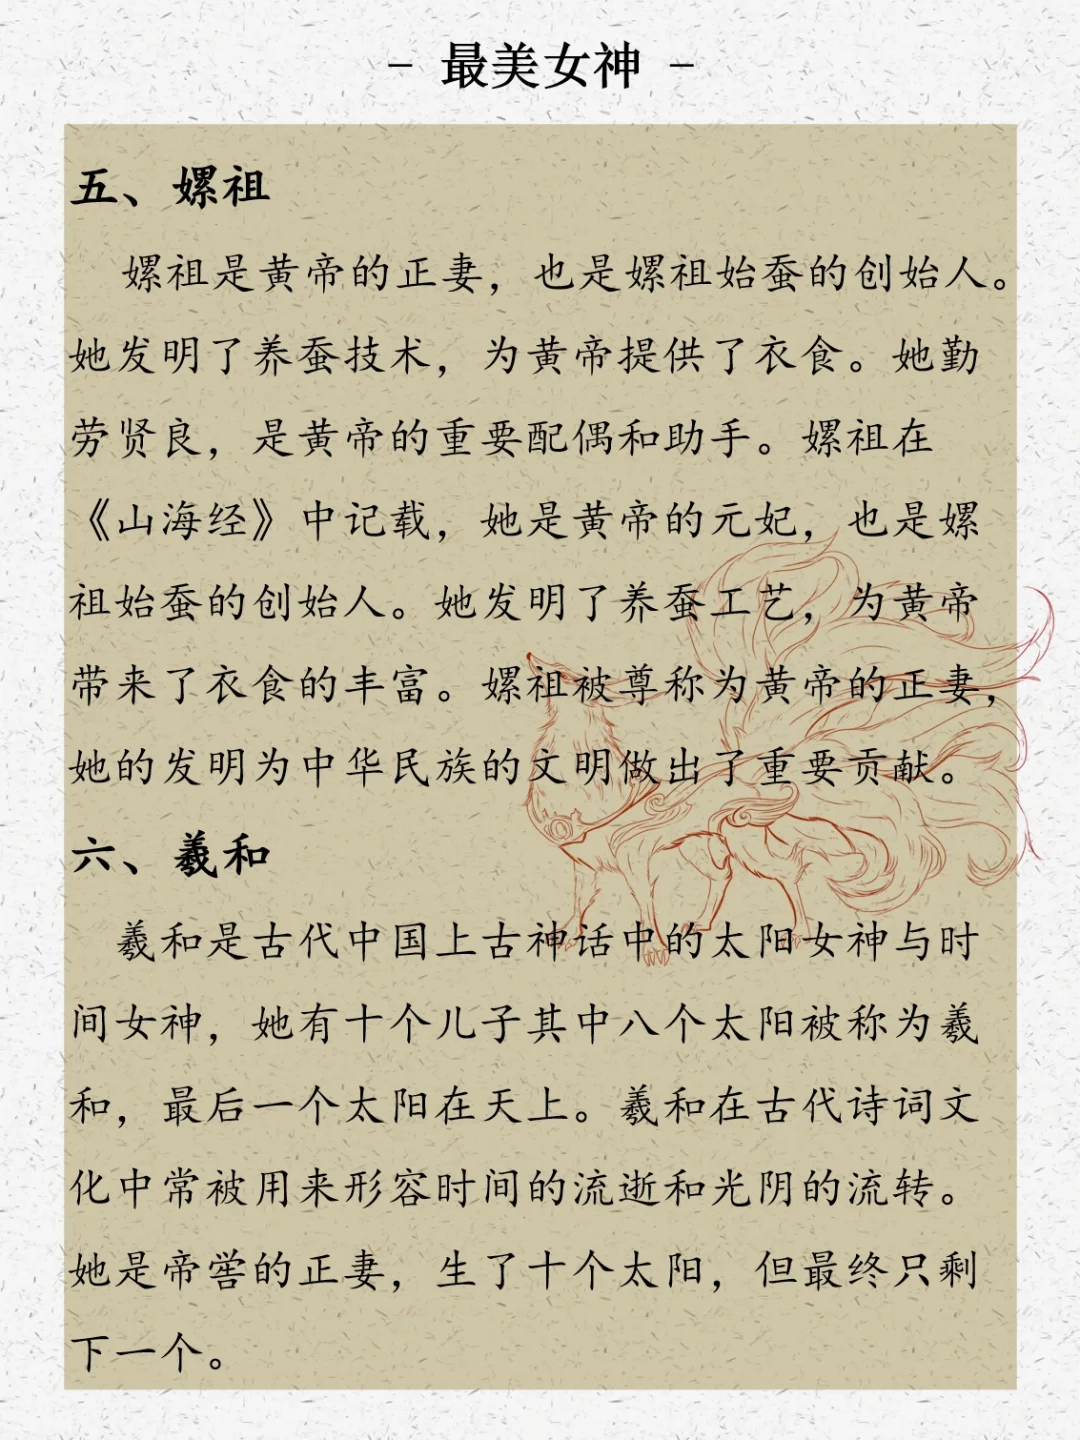 - 最美女神 -
五、嫘祖
嫘祖是黄帝的正妻，也是嫘祖始蚕的创始人。
她发明了养蚕技术，为黄帝提供了衣食。她勤
劳贤良，是黄帝的重要配偶和助手。嫘祖在
《山海经》中记载，她是黄帝的元妃，也是嫘
祖始蚕的创始人。她发明了养蚕工艺，为黄帝
带来了衣食的丰富。嫘祖被尊称为黄帝的正妻，
她的发明为中华民族的文明做出了重要贡献。
六、羲和
羲和是古代中国上古神话中的太阳女神与时
间女神，她有十个儿子其中八个太阳被称为羲
和，最后一个太阳在天上。羲和在古代诗词文
化中常被用来形容时间的流逝和光阴的流转。
她是帝喾的正妻，生了十个太阳，但最终只剩
下一个。